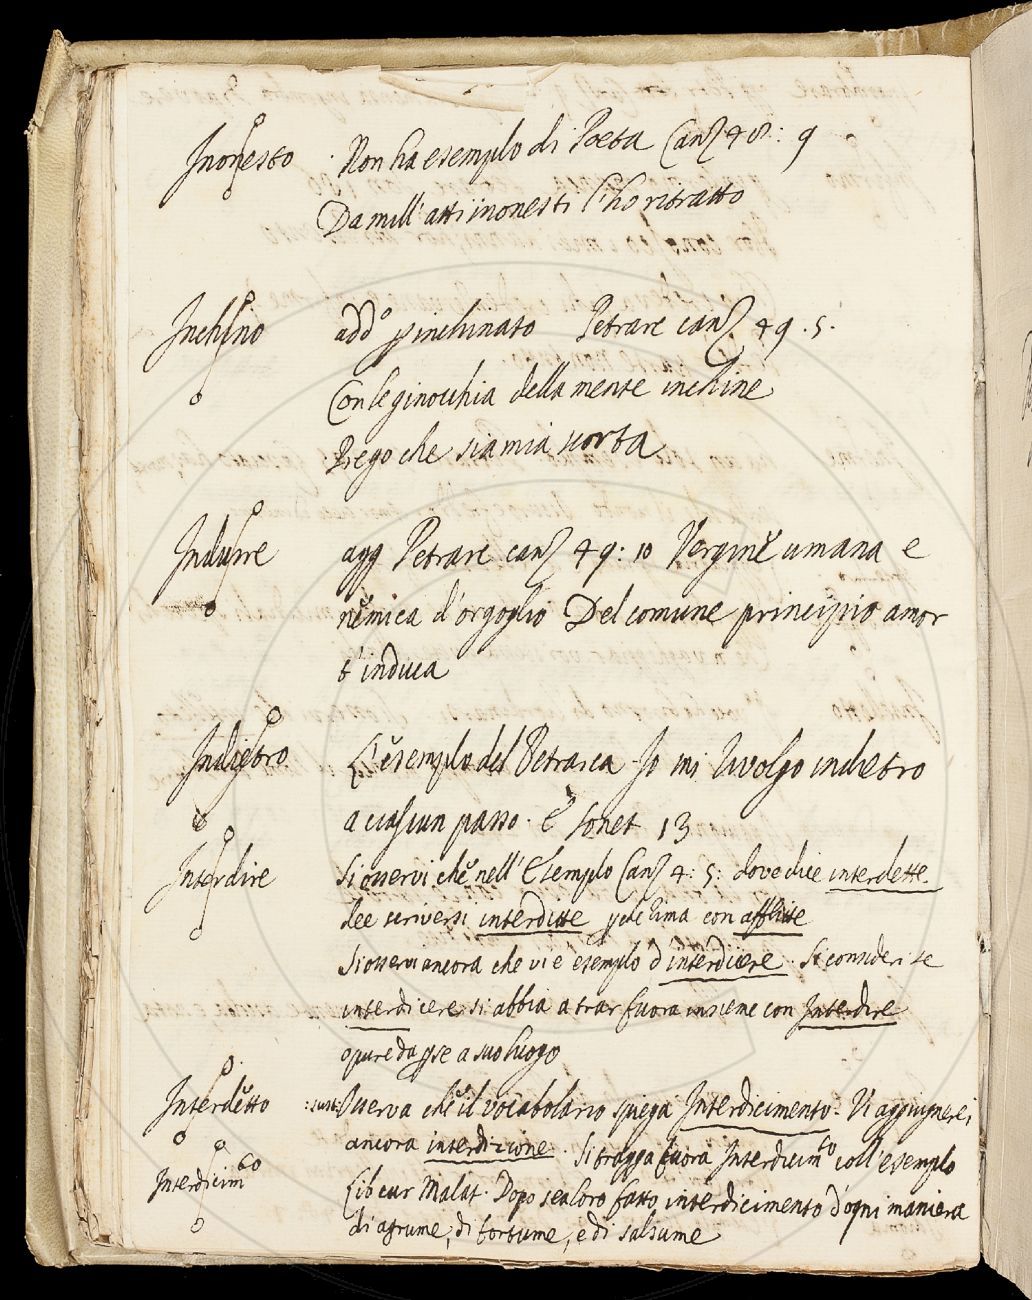 Inonesto . Non ha esemplo di Poeta Canz 48: 9
Da mill' atti inonesti l'ho ritratto
Inchino add° p inchinato Petrarc canz 49. 5.
Con le ginocchia della mente inchine
Prego che sia mia scorta
Indurre agg Petrarc canz 49: 10 Vergine umana e
nemica d'orgoglio Del comune principio amor
t'induca
Indietro L'esemplo del Petrarca Io mi rivolgo indietro
a ciascun passo. è sonet 13
Interdire Si osservi che nell' Esemplo Canz 4: 5: dove dice interdette
dee scriversi interditte rima con afflitte
Si osservi ancora che vi è esemplo d interdicere. Si consideri se
interdicere si abbia a trar fuora insieme con Interdire
opure da sé a suo luogo
Interdetto : sust: Osserva che il vocabolario spiega Interdicimento. Vi aggiugnerei
ancora interdizione. Si tragga fuora Interdicimto coll'esemplo
Interdicimto Lib cur Malat. Dopo sea loro fatto interdicimento d'ogni maniera
di agrume, di fortume, e di salsume